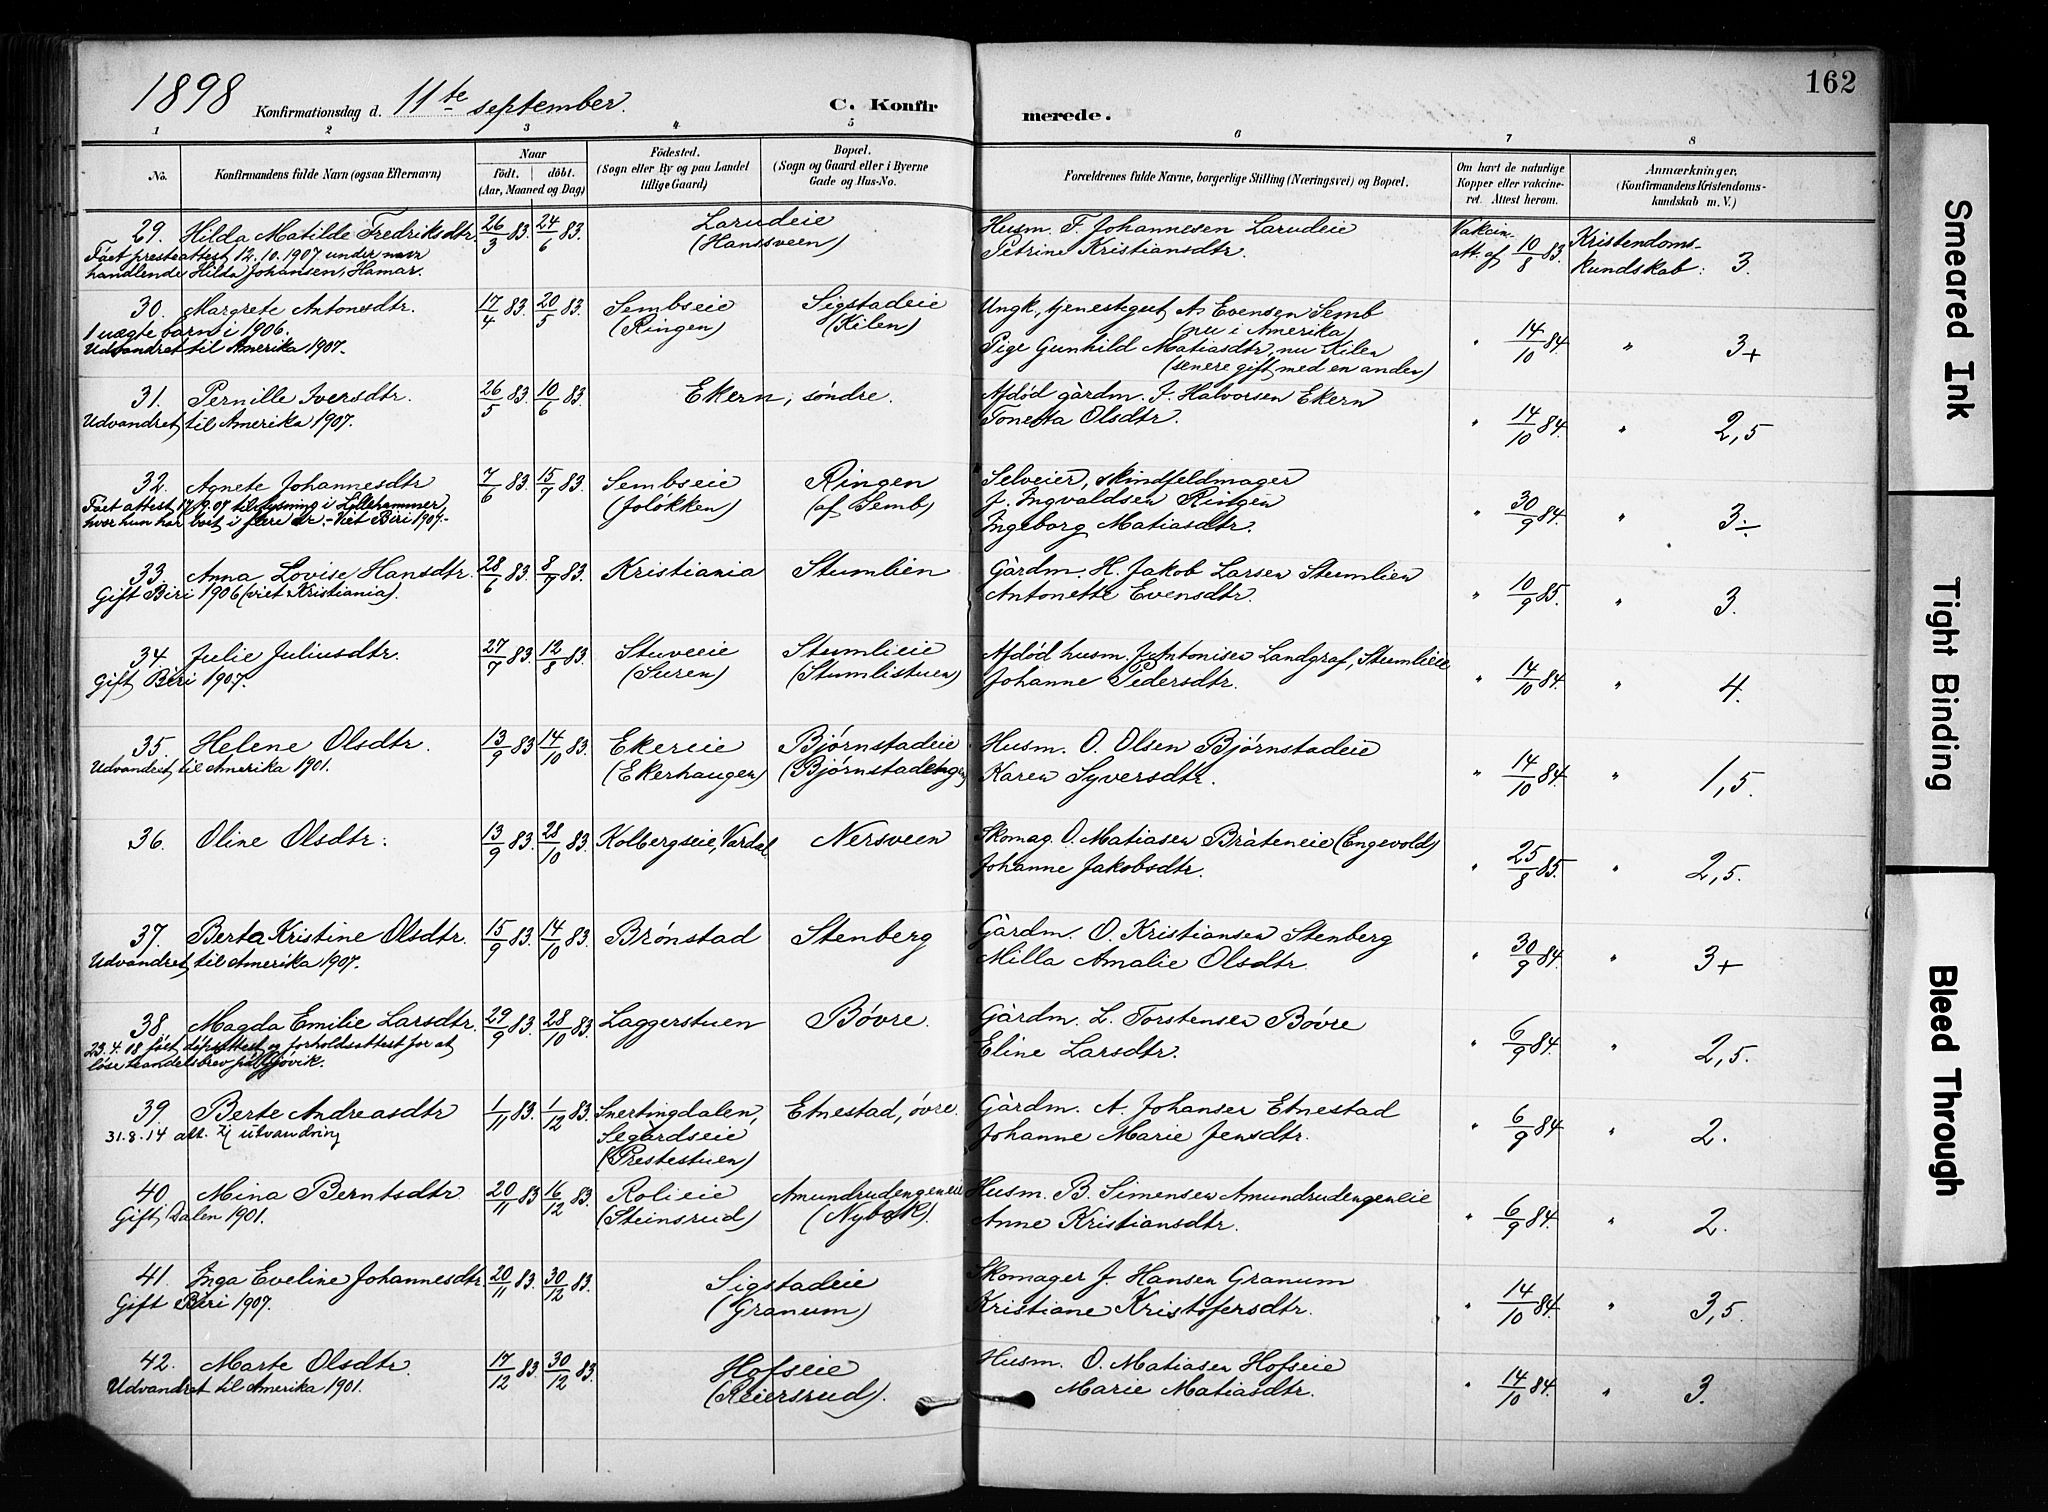 1898 Konfirmationsdag d. 11te september. C. Konfirmerede. 162
1 2 3 4 5 6 7 8
No. Konfirmandens fulde Navn (ogsaa Efternavn) Naar født. døbt. (Aar, Maaned og Dag) Fødested. (Sogn eller By og paa Landet tillige Gaard) Bopæl. (Sogn og Gaard eller i Byerne Gade og Hus-No. Forældrenes fulde Navne, borgerlige Stilling (Næringsvei) og Bopæl. Om havt de naturlige Kopper eller vakcineret. Attest herom. Anmærkninger, (Konfirmandens Kristendomskundskab m. V.)
29. Hilda Matilde Fredriksdtr. 26/3 83. 24/6 83. Larudeie (Hanssveen) Husm. F. Johannesen Larudeie Petrine Kristiansdtr. Vakcin. att. af 10/8 83. Kristendomskundskab: 3.
Fået presteattest 12.10.1907 under navn
handlende Hilda Johansen, Hamar.
30. Margrete Antonsdtr. 17/4 83. 20/5 83. Sembseie (Ringen) Sigstadeie (Kilen) Ungk., tjenestegut A. Evensen Semb (nu i Amerika) Pige Gunhild Matiasdtr., nu Kilen (senere gift med en anden) " 14/10 84. " 3+
1 uægte barn i 1906.
Udvandret til Amerika 1907.-
31. Pernille Iversdtr. 26/5 83. 10/6 83. Ekern, søndre. Afdød gårdm. I. Halvorsen Ekern Tonetta Olsdtr. " 14/10 84. " 2,5
Udvandret til Amerika 1907.
32. Agnete Johannesdtr 7/6 83. 15/7 83. Sembseie (Joløkken) Ringen (af Semb) Selveier, skindfeldmager J. Ingvaldsen Ringen Ingeborg Matiasdtr. " 30/9 84. " 3÷
Fået attest 17/9.07 til lysning i Lillehammer,
hvor hun har boit i flere år. - Viet Biri 1907.-
33. Anna Lovise Hansdtr. 28/6 83. 8/9 83. Kristiania Stumlien Gårdm. H. Jakob Larsen Stumlien Antonette Evensdtr. " 10/9 85. " 3.
Gift Biri 1906 (viet Kristiania).
34. Julie Juliusdtr. 27/7 83. 12/8 83. Stuveeie (Suren) Stumlieie (Stumlistuen) Afdød husm. J. Antonisen Landgraf, Stumlieie Johanne Pedersdtr. " 14/10 84. " 4.
Gift Biri 1907.
35. Helene Olsdtr. 13/9 83. 14/10 83. Ekereie (Ekerhaugen) Bjørnstadeie (Bjørnstadengen) Husm. O. Olsen Bjørnstadeie Karen Syversdtr. " 14/10 84. " 1,5.
Udvandret til Amerika 1901.
36. Oline Olsdtr. 13/9 83. 28/10 83. Kolbergseie, Vardal Nersveen Skomag. O. Matiasen Bråteneie (Engevold) Johanne Jakobsdtr. " 25/8 85. " 2,5.
37. Berta Kristine Olsdtr. 15/9 83. 14/10 83. Brønstad Stenberg Gårdm. O. Kristiansen Stenberg Milla Amalie Olsdtr. " 30/9 84. " 3+
Udvandret til Amerika 1907.
38. Magda Emilie Larsdtr. 29/9 83. 28/10 83. Laggerstuen Bøvre. Gårdm. L. Torstensen Bøvre Eline Larsdtr. " 6/9 84. " 2,5.
23.4.18 fået dåpsattest og forholdsattest for at
løse handelsbrev på Gjøvik.
39. Berte Andreasdtr 1/11 83. 1/12 83. Snertingdalen, Segårdseie (Prestestuen) Etnestad, øvre. Gårdm. A. Johansen Etnestad Johanne Marie Jensdtr. " 6/9 84. " 2.
31.8.14 att. til utvandring
40. Mina Berntsdtr. 20/11 83. 16/12 83. Rolieie (Steinsrud) Amundrudengeneie (Nybakk). Husm. B. Simensen Amundrudengeneie Anne Kristiansdtr. " 6/9 84. " 2.
Gift Dalen 1901.
41. Inga Eveline Johannesdtr. 20/11 83. 30/12 83. Sigstadeie (Granum) Skomager J. Hansen Granum Kristiane Kristofersdtr. " 14/10 84. " 3,5.
Gift Biri 1907.
42. Marte Olsdtr. 17/12 83. 30/12 83. Hofseie (Reiersrud). Husm. O. Matiasen Hofseie Marie Matiasdtr. " 14/10 84. " 3.
Udvandret til Amerika 1901.
Smeared Ink
Tight Binding
Bleed Through